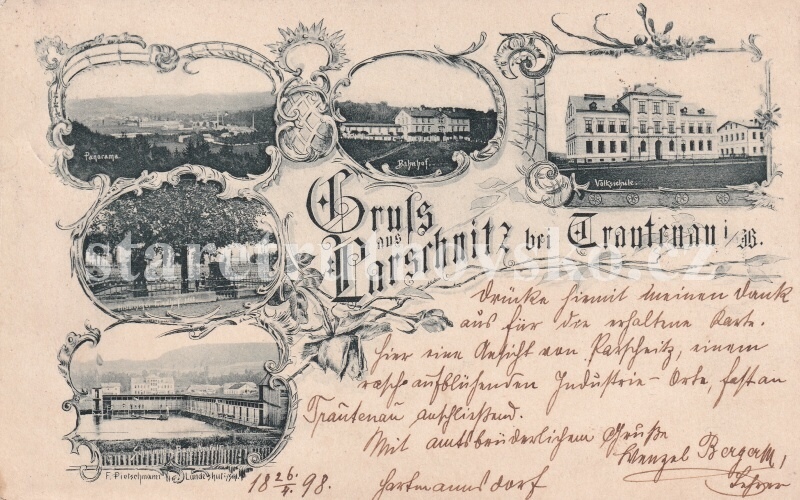 Panorama.
Bahnhof.
Volksschule.
Gruss
aus
Parschnitz bei Trautenau i/B.
staretrutnovsko.cz
Drücke hiemit meinen Dank
aus für die erhaltene Karte.
Hier eine Ansicht von Parschnitz, einem
rasch aufblühenden Industrie-Orte, fast an
Trautenau anschließend.
Mit amtsbrüderlichem Gruße
Wenzel
Lehrer
Hartmannsdorf
F. Pietschmann
Landeshut i/Schl.